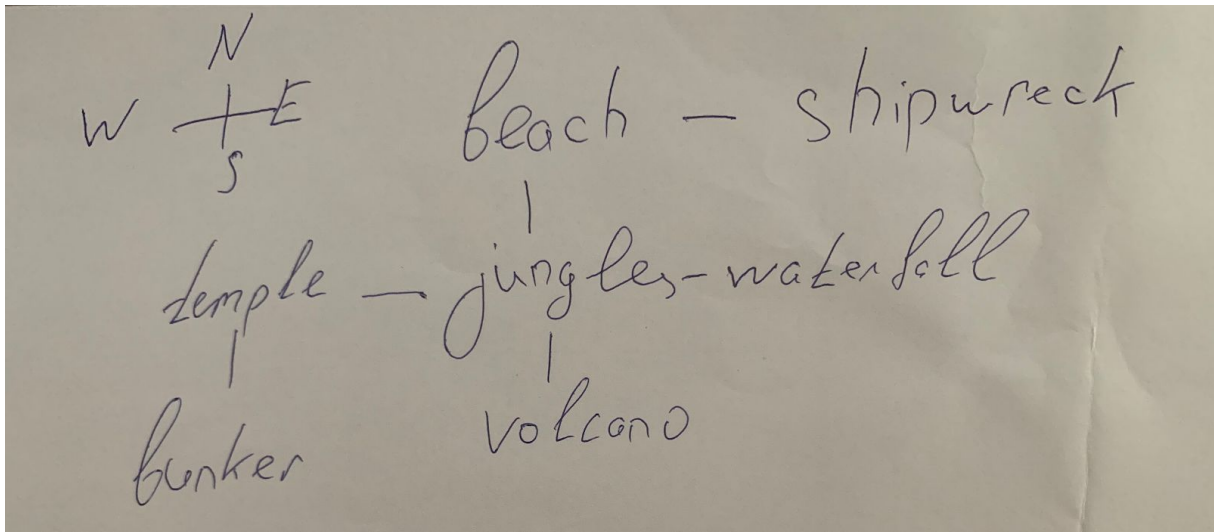 N
W E
S
beach - shipwreck
temple - jungles - waterfall
bunker
volcano